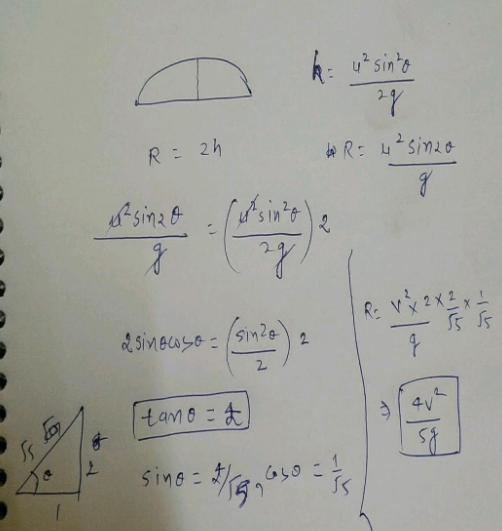 h = u² sin²θ / 2g
R = 2h
R = u² sin2θ / g
u² sin2θ / g = (u² sin²θ / 2g) 2
2 sinθ cosθ = (sin²θ / 2) 2
tanθ = 2
sinθ = 2/√5, cosθ = 1/√5
√5
θ
2
1
R = v² × 2 × 2/√5 × 1/√5 / g
⇒ 4v² / 5g